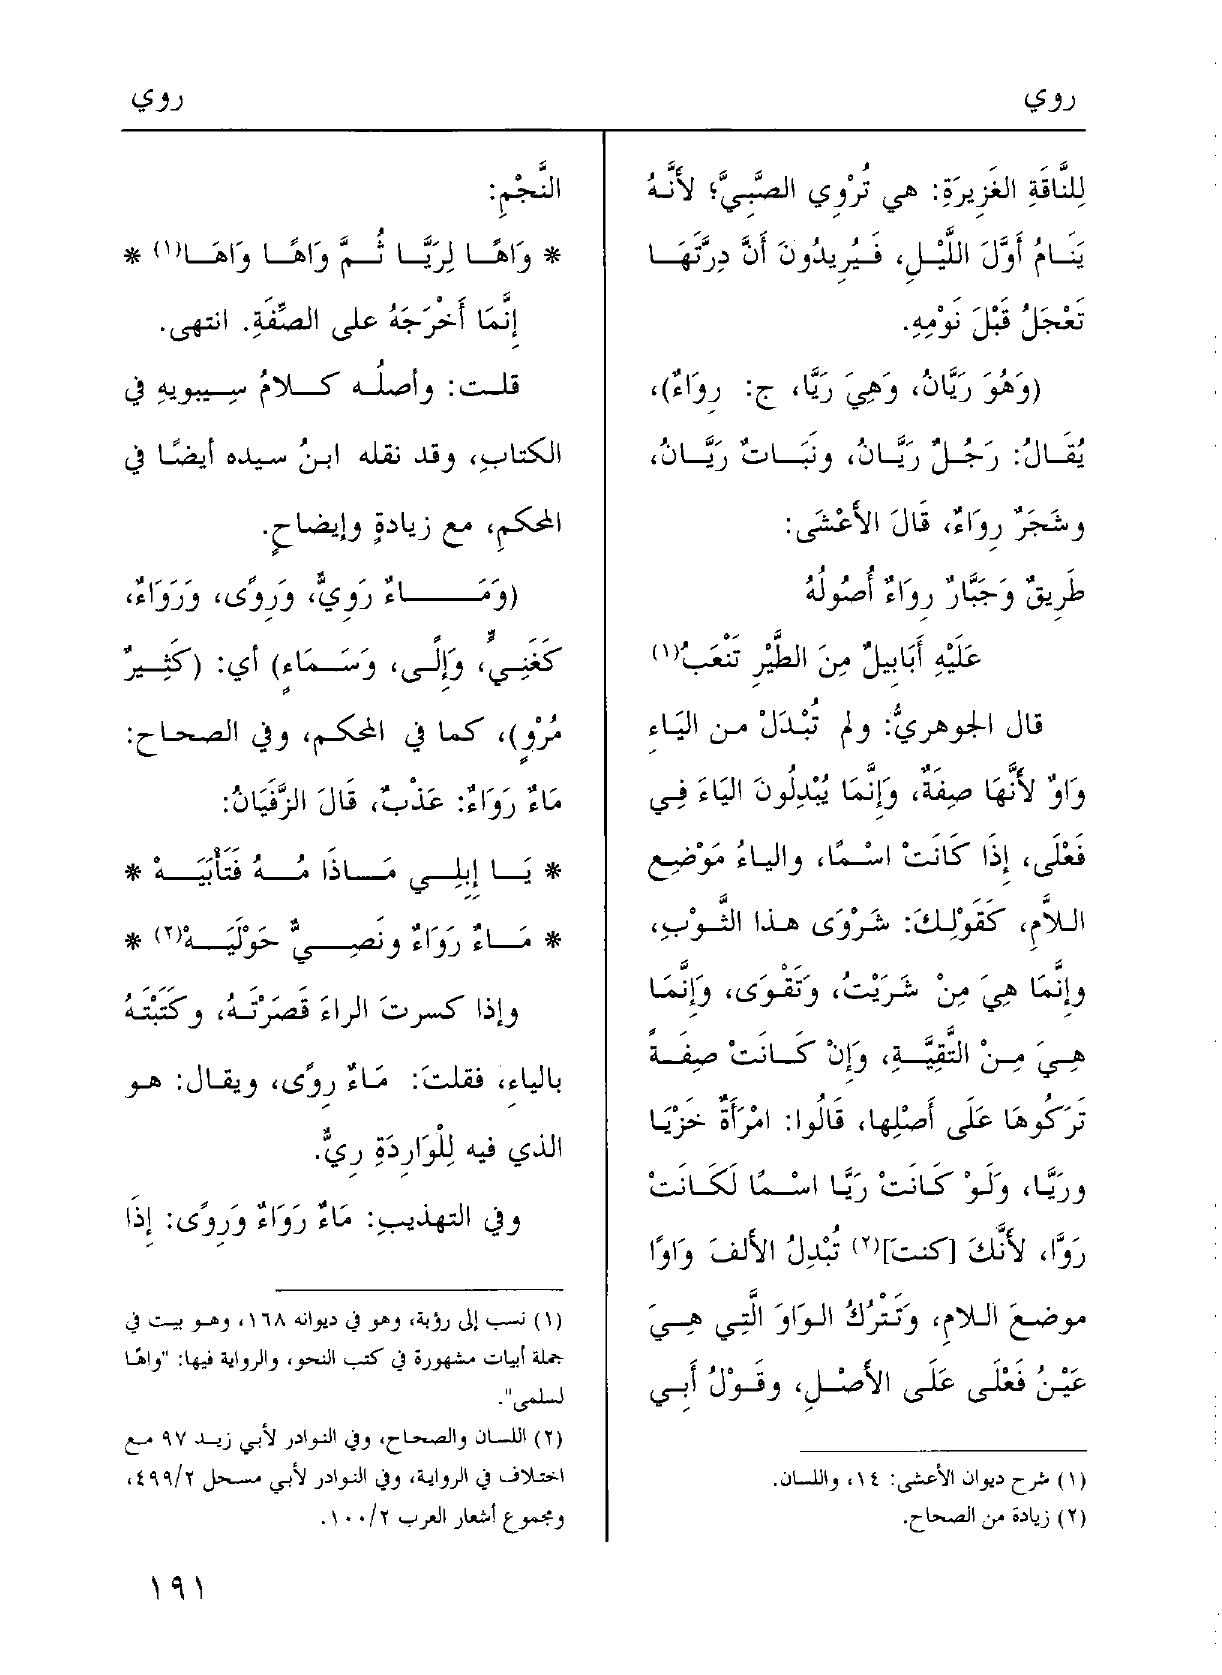 روي
روي
لِلنَّاقَةِ الغَزِيرَةِ: هي تُرْوِي الصَّبِيَّ؛ لأَنَّهُ
يَنَامُ أَوَّلَ اللَّيْلِ، فَيُرِيدُونَ أَنَّ دِرَّتَهَا
تَعْجَلُ قَبْلَ نَوْمِهِ.
(وَهُوَ رَيَّانُ، وَهِيَ رَيَّا، ج: رِوَاءٌ)،
يُقَالُ: رَجُلٌ رَيَّانُ، ونَبَاتٌ رَيَّانُ،
وشَجَرٌ رِوَاءٌ، قَالَ الأَعْشَى:
طَرِيقٌ وَجَبَّارٌ رِواءٌ أُصُولُهُ
عَلَيْهِ أَبَابِيلٌ مِنَ الطَّيْرِ تَنْعَبُ(١)
قال الجوهريُّ: ولم تُبْدَلْ من اليَاءِ
وَاوٌ لأَنَّهَا صِفَةٌ، وَإِنَّمَا يُبْدِلُونَ اليَاءَ فِي
فَعْلَى، إِذَا كَانَتْ اسْمًا، والياءُ مَوْضِع
اللاَّمِ، كَقَوْلِكَ: شَرْوَى هذا الثَّوْبِ،
وإِنَّمَا هِيَ مِنْ شَرَيْتُ، وَتَقْوَى، وَإِنَّمَا
هِيَ مِنْ التَّقِيَّةِ، وَإِنْ كَانَتْ صِفَةً
تَرَكُوهَا عَلَى أَصْلِها، قَالُوا: امْرَأَةٌ خَزْيَا
ورَيَّا، وَلَوْ كَانَتْ رَيَّا اسْمًا لَكَانَتْ
رَوَّا، لأَنَّكَ [كنتَ](٢) تُبْدِلُ الأَلفَ وَاوًا
موضعَ اللامِ، وَتَتْرُكُ الوَاوَ الَّتِي هِيَ
عَيْنُ فَعْلَى عَلَى الأَصْلِ، وقَوْلُ أَبِي
(١) شرح ديوان الأعشى: ١٤، واللسان.
(٢) زيادة من الصحاح.
النَّجْمِ:
* وَاهًا لِرَيَّا ثُمَّ وَاهًا وَاهَا(١) *
إِنَّمَا أَخْرَجَهُ على الصِّفَةِ. انتهى.
قلت: وأصلُه كلامُ سِيبويهِ في
الكتابِ، وقد نقله ابنُ سيده أيضًا في
المحكمِ، مع زيادةٍ وإيضاحٍ.
(وَمَاءٌ رَوِيٌّ، وَرِوًى، وَرَوَاءٌ،
كَغَنِيٍّ، وَإِلًى، وَسَمَاءٍ) أي: (كَثِيرٌ
مُرْوٍ)، كما في المحكم، وفي الصحاح:
مَاءٌ رَوَاءٌ: عَذْبٌ، قَالَ الزَّفَيَانُ:
* يَا إِبِلِي مَاذَا مُهُ فَتَأْبَيَهْ *
* مَاءٌ رَوَاءٌ ونَصِيٌّ حَوْلَيَهْ(٢) *
وإذا كسرتَ الراءَ قَصَرْتَهُ، وكَتَبْتَهُ
بالياءِ، فقلتَ: مَاءٌ رِوًى، ويقال: هو
الذي فيه لِلْوَارِدَةِ رِيٌّ.
وفي التهذيبِ: مَاءٌ رَوَاءٌ وَرِوًى: إِذَا
(١) نسب إلى رؤبة، وهو في ديوانه ١٦٨، وهو بيت في
جملة أبيات مشهورة في كتب النحو، والرواية فيها: "واهًا
لسلمى".
(٢) اللسان والصحاح، وفي النوادر لأبي زيد ٩٧ مع
اختلاف في الرواية، وفي النوادر لأبي مسحل ٤٩٩/٢،
ومجموع أشعار العرب ١٠٠/٢.
١٩١